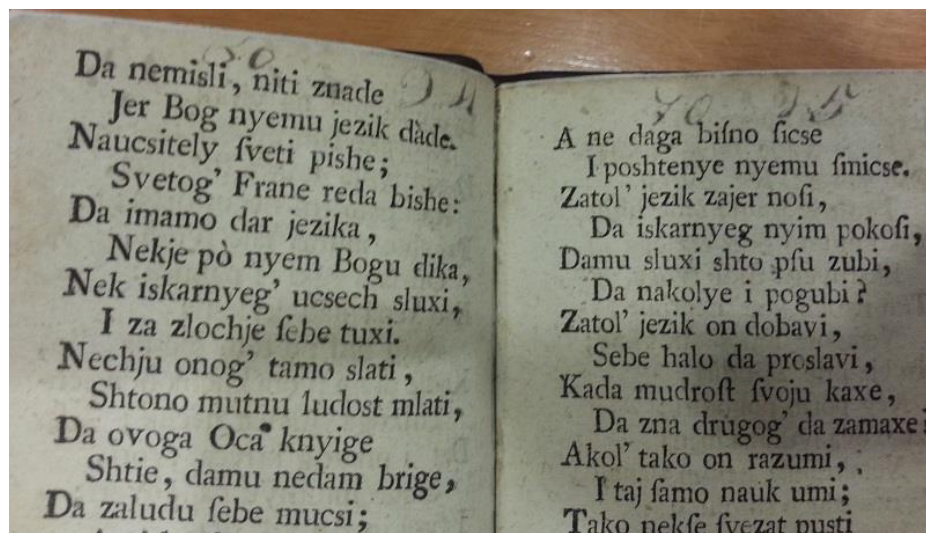 Da nemisli, niti znade
Jer Bog nyemu jezik dàde.
Naucsitely ſveti pishe;
Svetog' Frane reda bishe:
Da imamo dar jezika,
Nekje pò nyem Bogu dika,
Nek iskarnyeg' ucsech sluxi,
I za zlochje ſebe tuxi.
Nechju onog' tamo slati,
Shtono mutnu ludost mlati,
Da ovoga Oca knyige
Shtie, damu nedam brige,
Da zaludu ſebe mucsi;
A ne daga biſno ſicse
I poshtenye nyemu ſmicse.
Zatol' jezik zajer noſi,
Da iskarnyeg nyim pokoſi,
Damu sluxi shto pſu zubi,
Da nakolye i pogubi?
Zatol' jezik on dobavi,
Sebe halo da proslavi,
Kada mudroſt ſvoju kaxe,
Da zna drugog' da zamaxe?
Akol' tako on razumi,
I taj ſamo nauk umi;
Tako nekſe ſvezat pusti